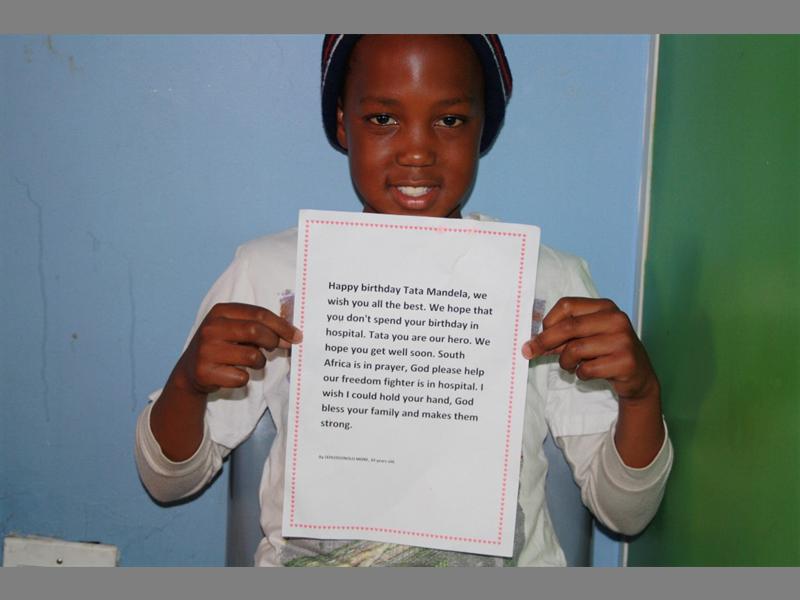 Happy birthday Tata Mandela, we
wish you all the best. We hope that
you don't spend your birthday in
hospital. Tata you are our hero. We
hope you get well soon. South
Africa is in prayer, God please help
our freedom fighter is in hospital. I
wish I could hold your hand, God
bless your family and makes them
strong.
By years old